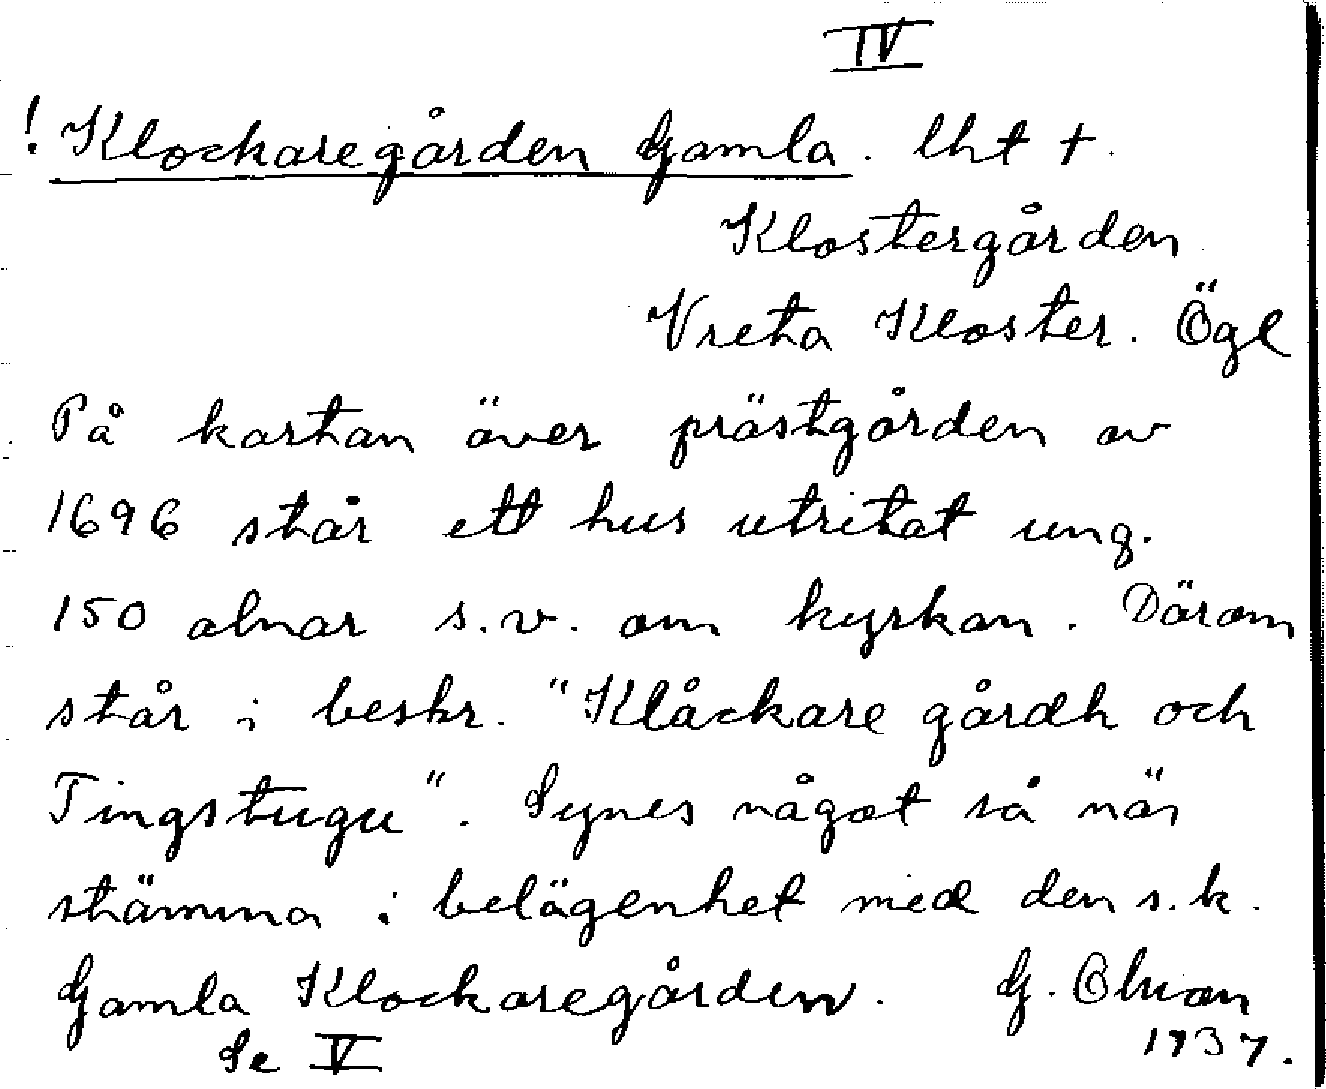 IV
! Klockaregården Gamla. lht †.
Klostergården
Vreta Kloster. Ögl
På kartan över prästgården av
1696 står ett hus utritat ung.
150 alnar s.v. om kyrkan. Därom
står i beskr. "Klåckare gårdh och
Tingstugu". Synes något så när
stämma i belägenhet med den s.k.
Gamla Klockaregården. G. Olson
Se V 1937.